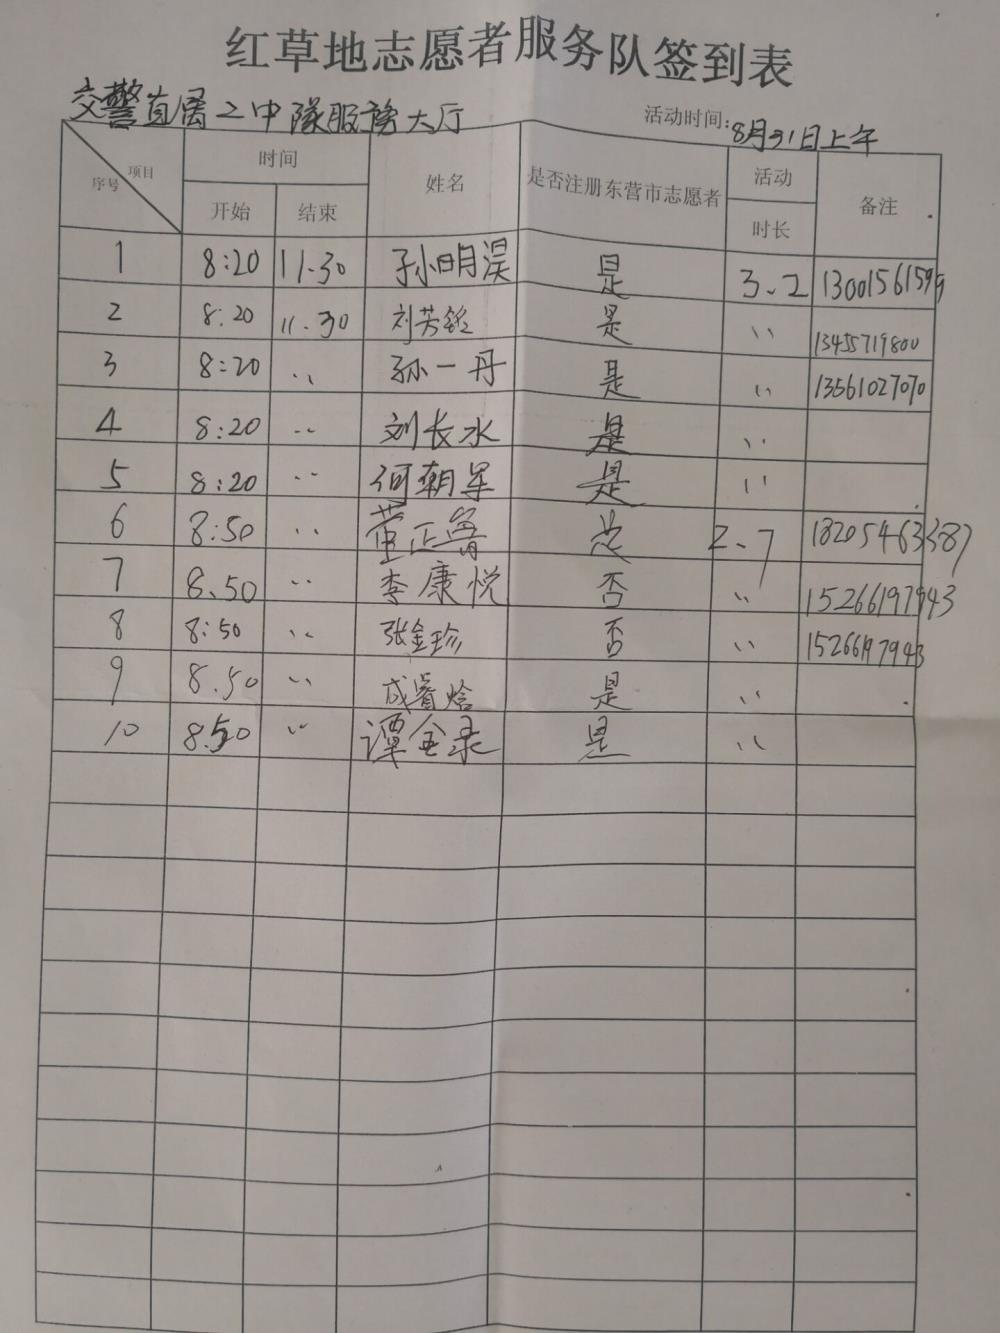 红草地志愿者服务队签到表
交警直属二中队服务大厅 活动时间:8月31日上午
序号 项目 时间 姓名 是否注册东营市志愿者 活动 备注
开始 结束 时长
1 8:20 11.30 孙明淏 是 3.2 13001561599
2 8:20 11.30 刘芳 是 〃 13455719800
3 8:20 〃 孙一丹 是 〃 13561027070
4 8:20 〃 刘长水 是 〃
5 8:20 〃 何朝军 是 〃
6 8:50 〃 董正鲁 是 2.7 18205463387
7 8.50 〃 李康悦 否 〃 15266197943
8 8:50 〃 张金珍 否 〃 15266197943
9 8.50 〃 成睿焓 是 〃
10 8.50 〃 谭金录 是 〃